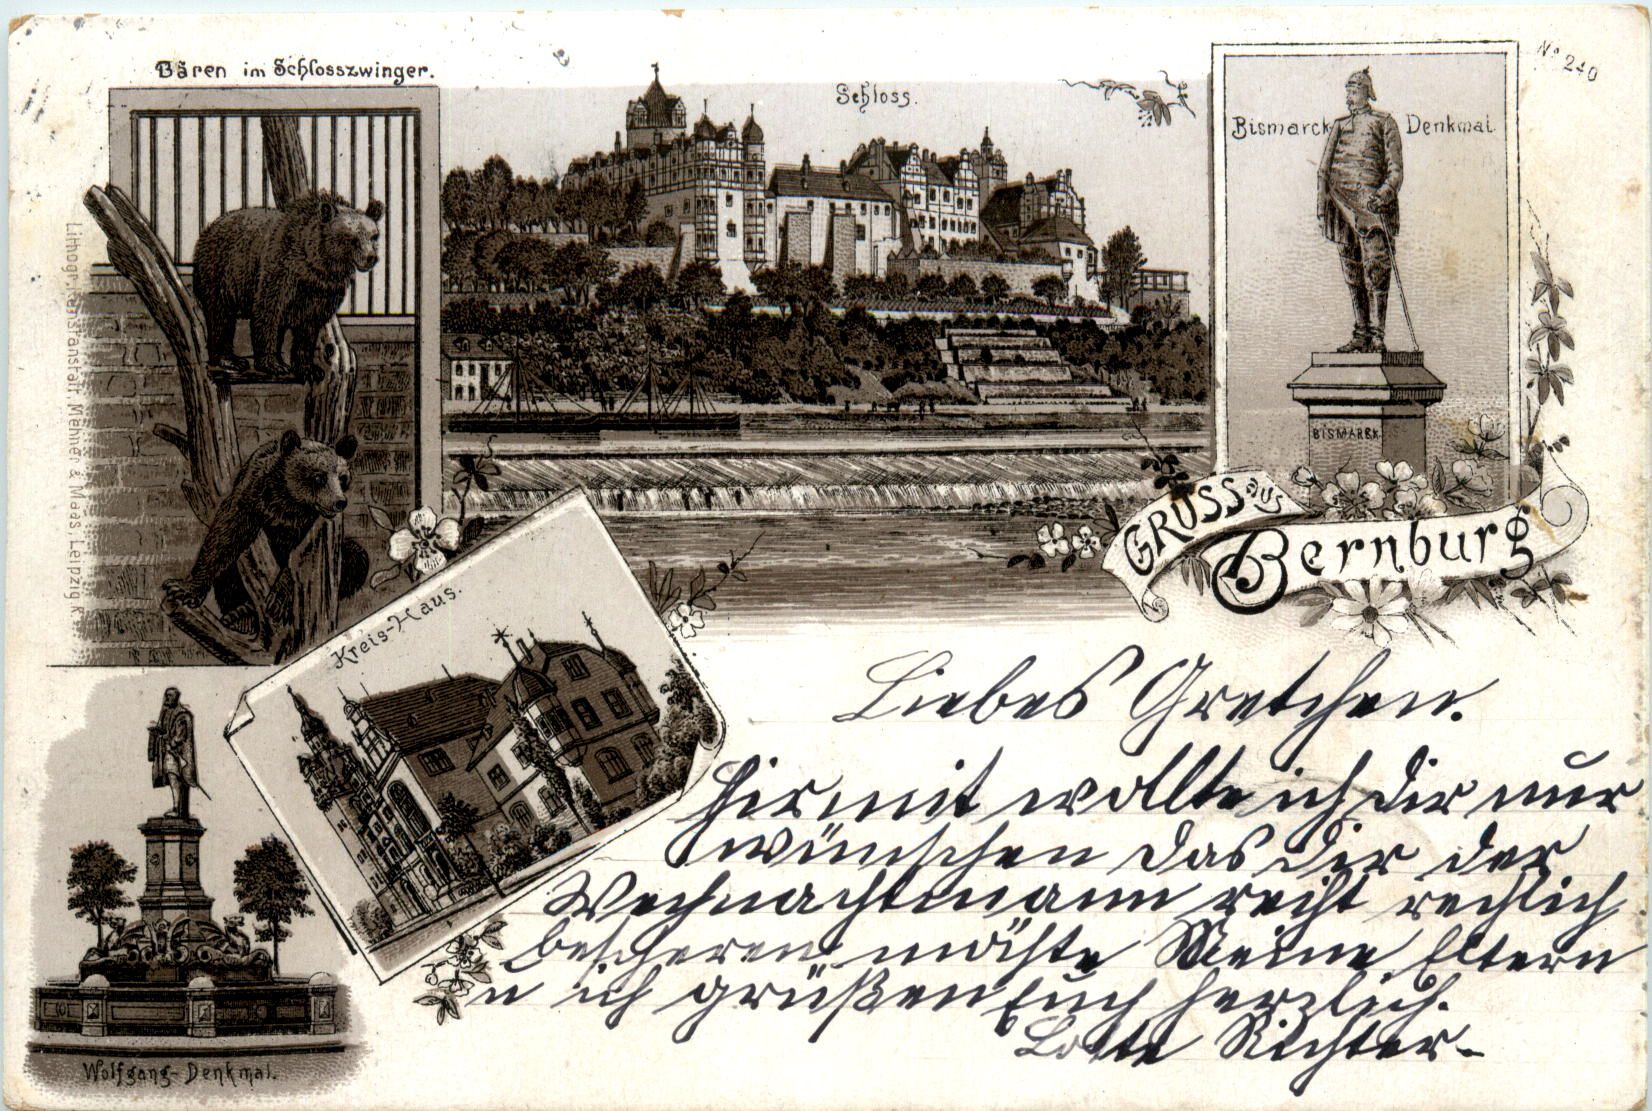 Bären im Schlosszwinger.
Schloss.
Bismarck Denkmal
No 240
BISMARCK
GRUSS aus
Bernburg
Kreis-Haus.
Wolfgang-Denkmal.
Lithogr. Kunstanstalt, Mehner & Maas, Leipzig R.
Liebes Gretchen.
Hiermit wollte ich dir nur
wünschen das dir der
Wechnachtmann recht rechlich
bescheren möchte Meine Eltern
u ich grüßen Euch herzlich.
Lotte Richter-